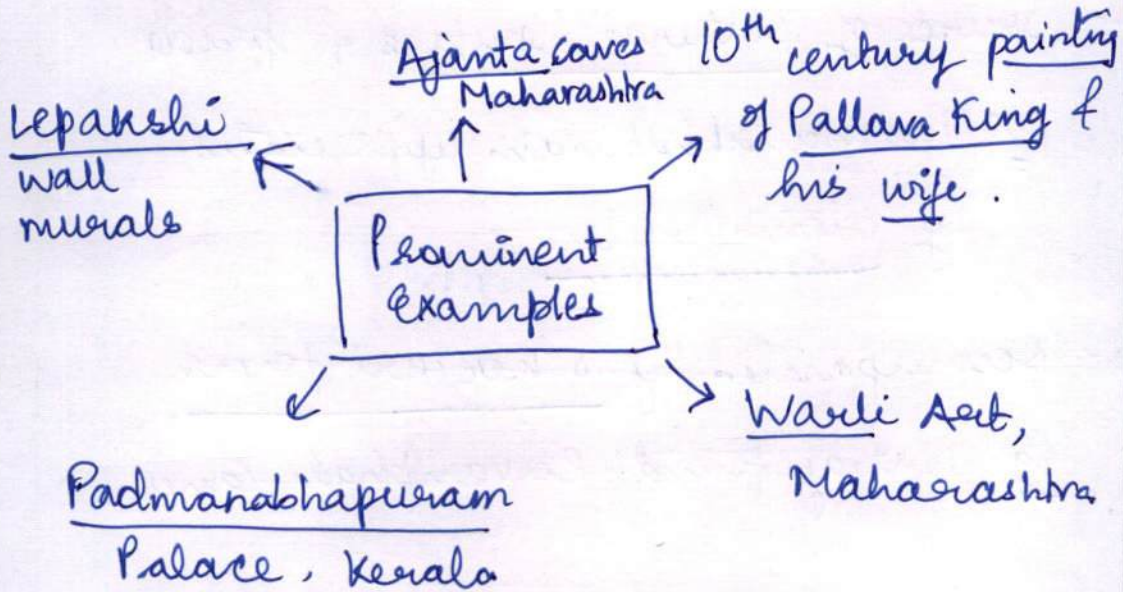 Lepakshi
wall
murals
Ajanta caves
Maharashtra
10th century painting
of Pallava King &
his wife.
Prominent
examples
Padmanabhapuram
Palace, Kerala
Warli Art,
Maharashtra